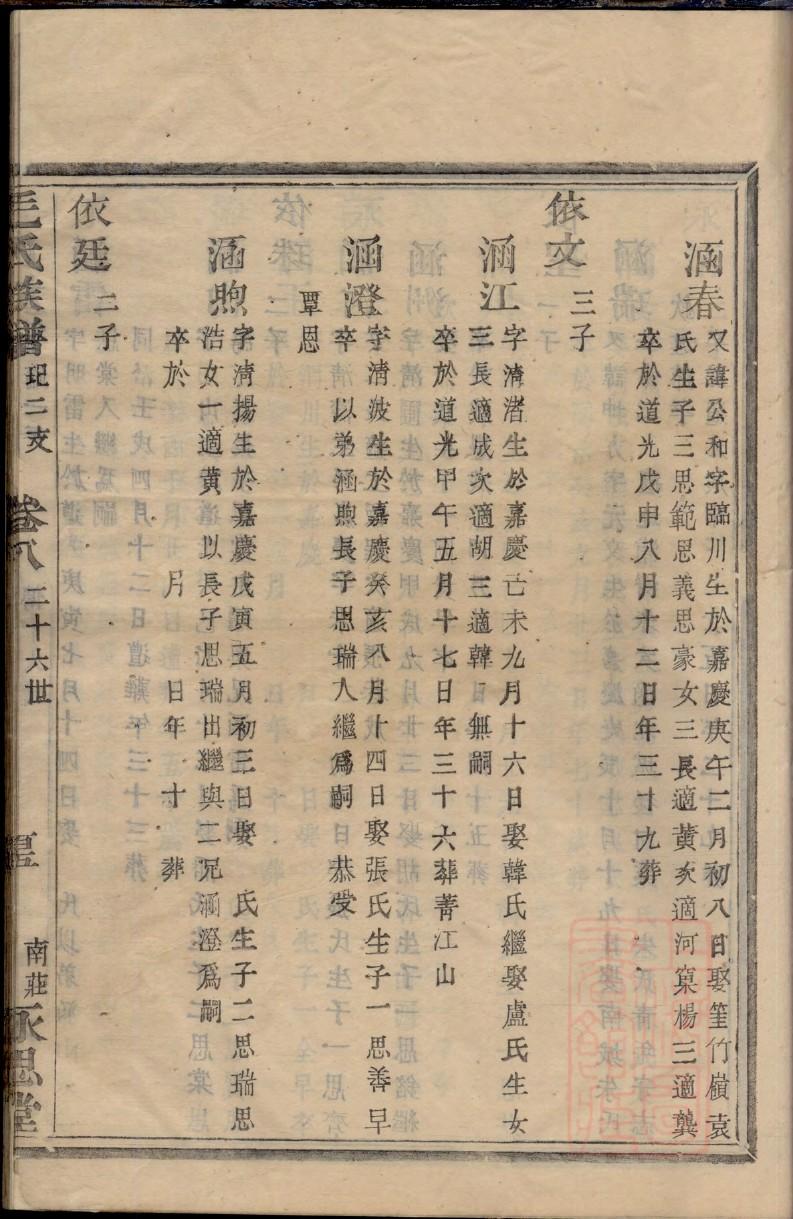 涵春
又諱公和字臨川生於嘉慶庚午二月初八日娶筀竹嶺袁
氏生子三思範思義思豪女三長適黃次適河窠楊三適龔
卒於道光戊申八月十二日年三十九葬
依文
三子
涵江
字清渚生於嘉慶己未九月十六日娶韓氏繼娶盧氏生女
三長適成次適胡三適韓 無嗣
卒於道光甲午五月十七日年三十六葬菁江山
涵澄
字清波生於嘉慶癸亥八月十四日娶張氏生子一思善早
卒 以弟涵煦長子思瑞入繼爲嗣 恭受
覃恩
涵煦
字清揚生於嘉慶戊寅五月初三日娶 氏生子二思瑞思
浩女一適黃 以長子思瑞出繼與二兄涵澄爲嗣
卒於 月 日年 十 葬
依廷
二子
毛氏族譜 玘二支 卷八 二十六世 南莊 永思堂